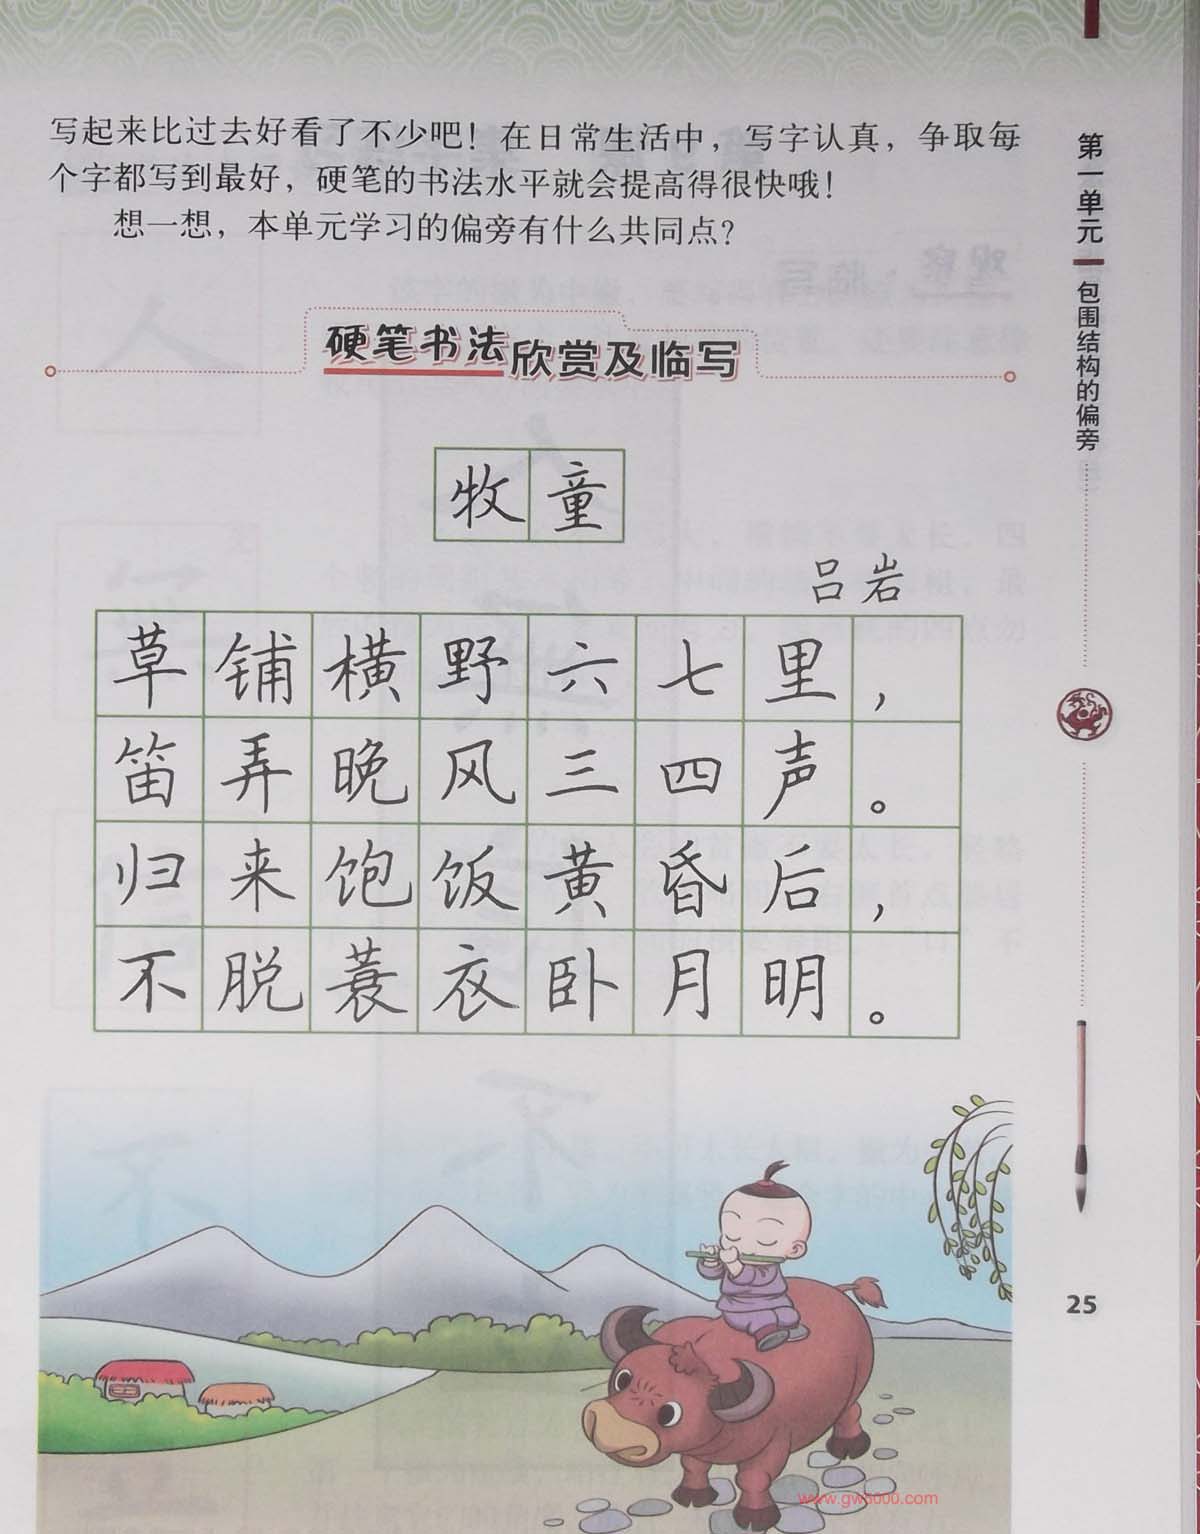 写起来比过去好看了不少吧！在日常生活中，写字认真，争取每
个字都写到最好，硬笔的书法水平就会提高得很快哦！
想一想，本单元学习的偏旁有什么共同点？
硬笔书法欣赏及临写
牧童
吕岩
草铺横野六七里，
笛弄晚风三四声。
归来饱饭黄昏后，
不脱蓑衣卧月明。
第一单元
包围结构的偏旁
25
www.gw5000.com